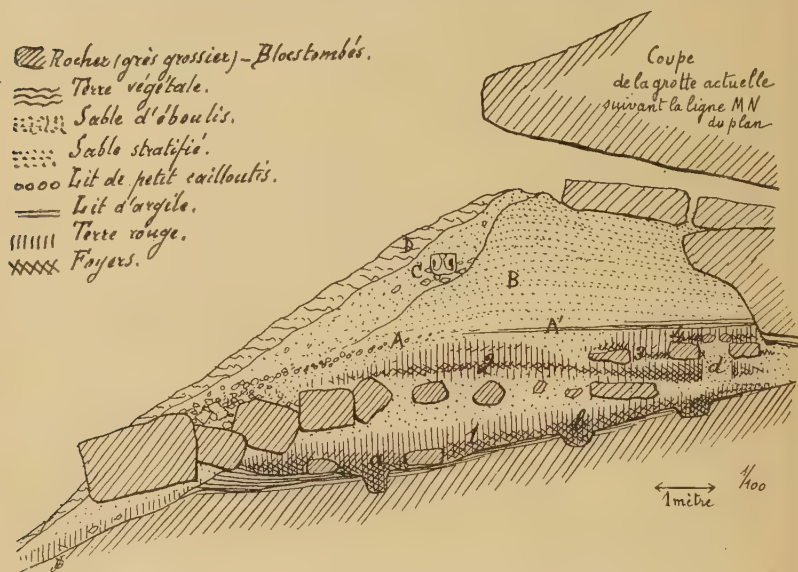 Rocher (grès grossier) – Blocs tombés.
Terre végétale.
Sable d'éboulis.
Sable stratifié.
Lit de petit cailloutis.
Lit d'argile.
Terre rouge.
Foyers.
Coupe
de la grotte actuelle
suivant la ligne MN
du plan
D
C
B
A
A'
4
2
3
d
1
b
a
1/100
1 mètre